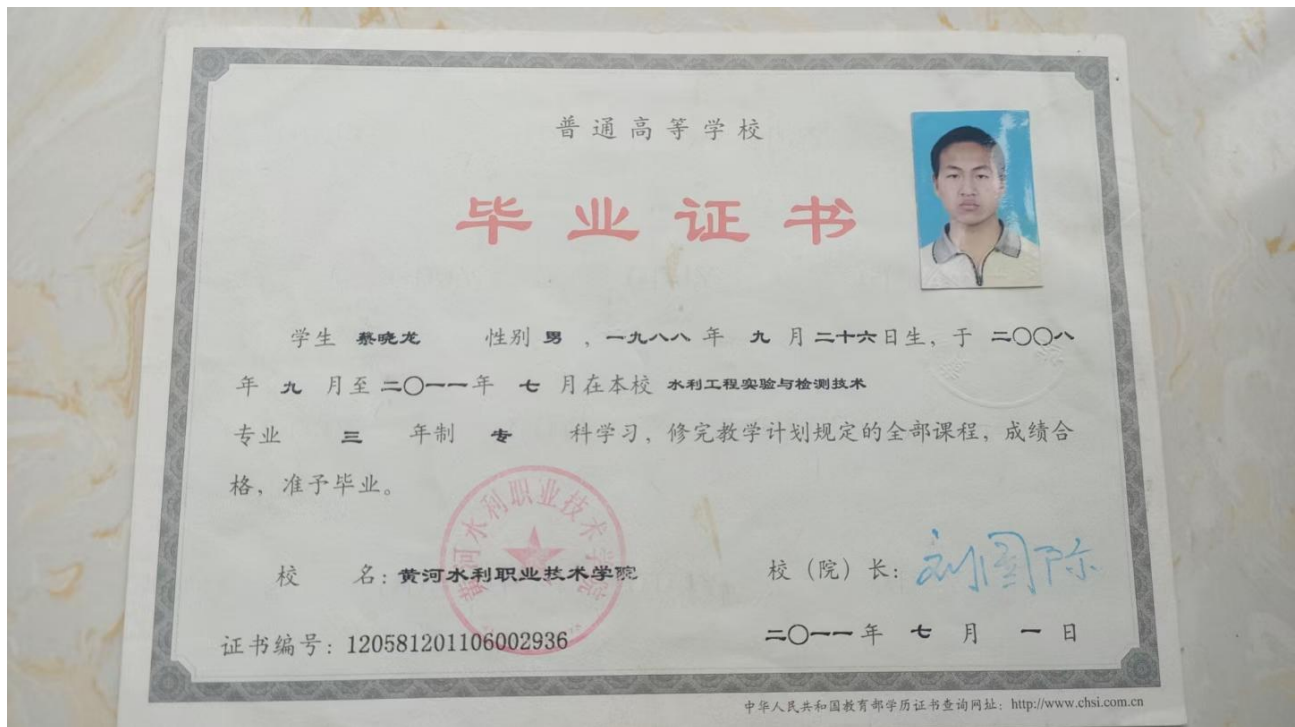 普通高等学校
毕业证书
学生 蔡晓龙 性别 男 ，一九八八 年 九 月 二十六 日生，于 二〇〇八
年 九 月至 二〇一一 年 七 月在本校 水利工程实验与检测技术
专业 三 年制 专 科学习，修完教学计划规定的全部课程，成绩合
格，准予毕业。
黄河水利职业技术学院
校 名：黄河水利职业技术学院
校（院）长：刘国际
证书编号：120581201106002936
二〇一一 年 七 月 一 日
中华人民共和国教育部学历证书查询网址：http://www.chsi.com.cn